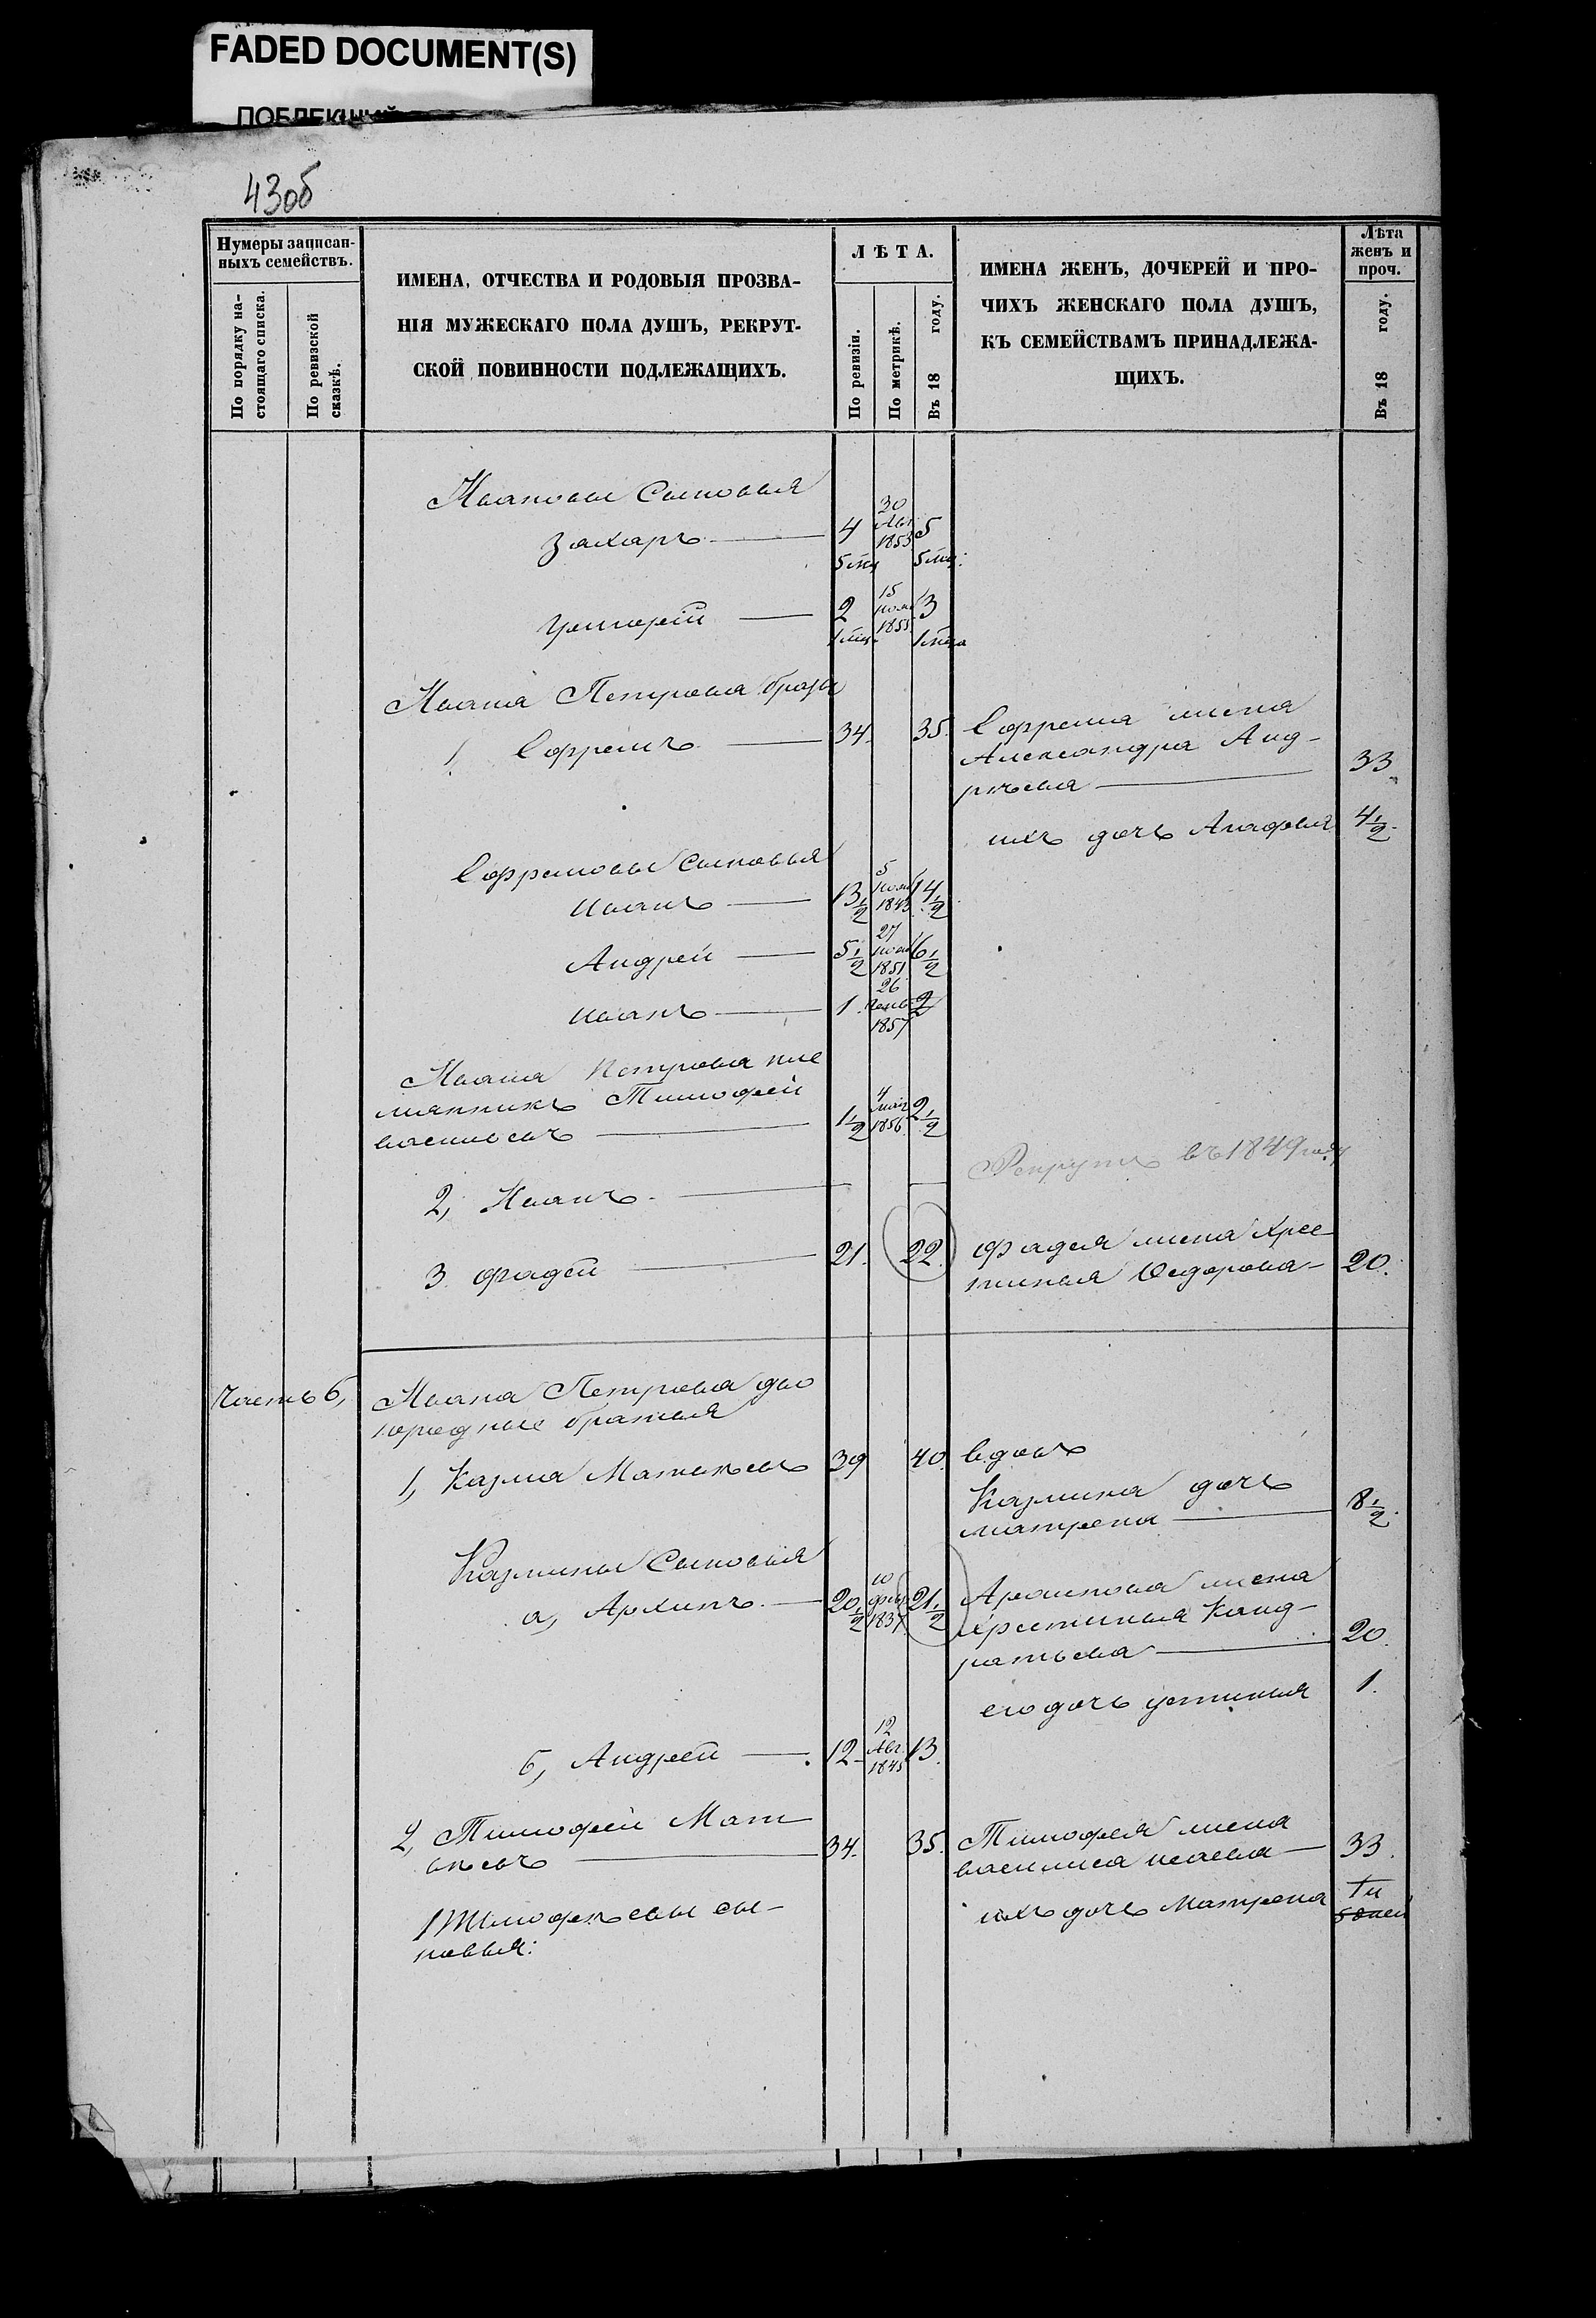 FADED DOCUMENT(S)
43об
Нумеры записан-
ныхъ семействъ.
По порядку на-
стоящаго списка.
По ревизской
сказкѣ.
ИМЕНА, ОТЧЕСТВА И РОДОВЫЯ ПРОЗВА-
НІЯ МУЖЕСКАГО ПОЛА ДУШЪ, РЕКРУТ-
СКОЙ ПОВИННОСТИ ПОДЛЕЖАЩИХЪ.
ЛѢТА.
По ревизіи.
По метрикѣ.
Въ 18 году.
ИМЕНА ЖЕНЪ, ДОЧЕРЕЙ И ПРО-
ЧИХЪ ЖЕНСКАГО ПОЛА ДУШЪ,
КЪ СЕМЕЙСТВАМЪ ПРИНАДЛЕЖА-
ЩИХЪ.
Лѣта
женъ и
проч.
Въ 18 году.
Ивановы Сыновья
Захаръ 4 5 мц 30 Авг 1853 5 5 мц.
Григорій 2 1 мц. 15 1855 3 1 мца
Ивана Петрова братья
1. Ефремъ 34. 35. Ефрема жена
Александра Анд-
рѣева 33
ихъ дочь Агафья 4 1/2.
Ефремовы сыновья
Иванъ 13 1/2 5 1843 14 1/2
Андрей 5 1/2 27 1851 6 1/2
Иванъ 1. 26 1857 2
Ивана Петрова пле
мянникъ Тимофей
Васильевъ 1 1/2 4 мая 1856 2 1/2
Рекрутъ въ 1849 году
2, Иванъ
3 Фадей 21. 22. Фадея жена Хрис
тинья Федорова 20.
Часть 6, Ивана Петрова дво
юродные братья
1, Казма Матвѣевъ 39 40. вдовъ
Казмина дочь
Матрена 8 1/2.
Казмины Сыновья
а, Архипъ 20 1/2 10 1837 21 1/2 Архипова жена
Христинья Канд-
ратьева 20.
его дочь Устинья 1.
б, Андрей 12 12 Авг. 1845 13.
2, Тимофей Мат
вѣевъ 34. 35. Тимофея жена
Василиса Исаева 33.
ихъ дочь Матрена
Тимофеевы сы-
новья: